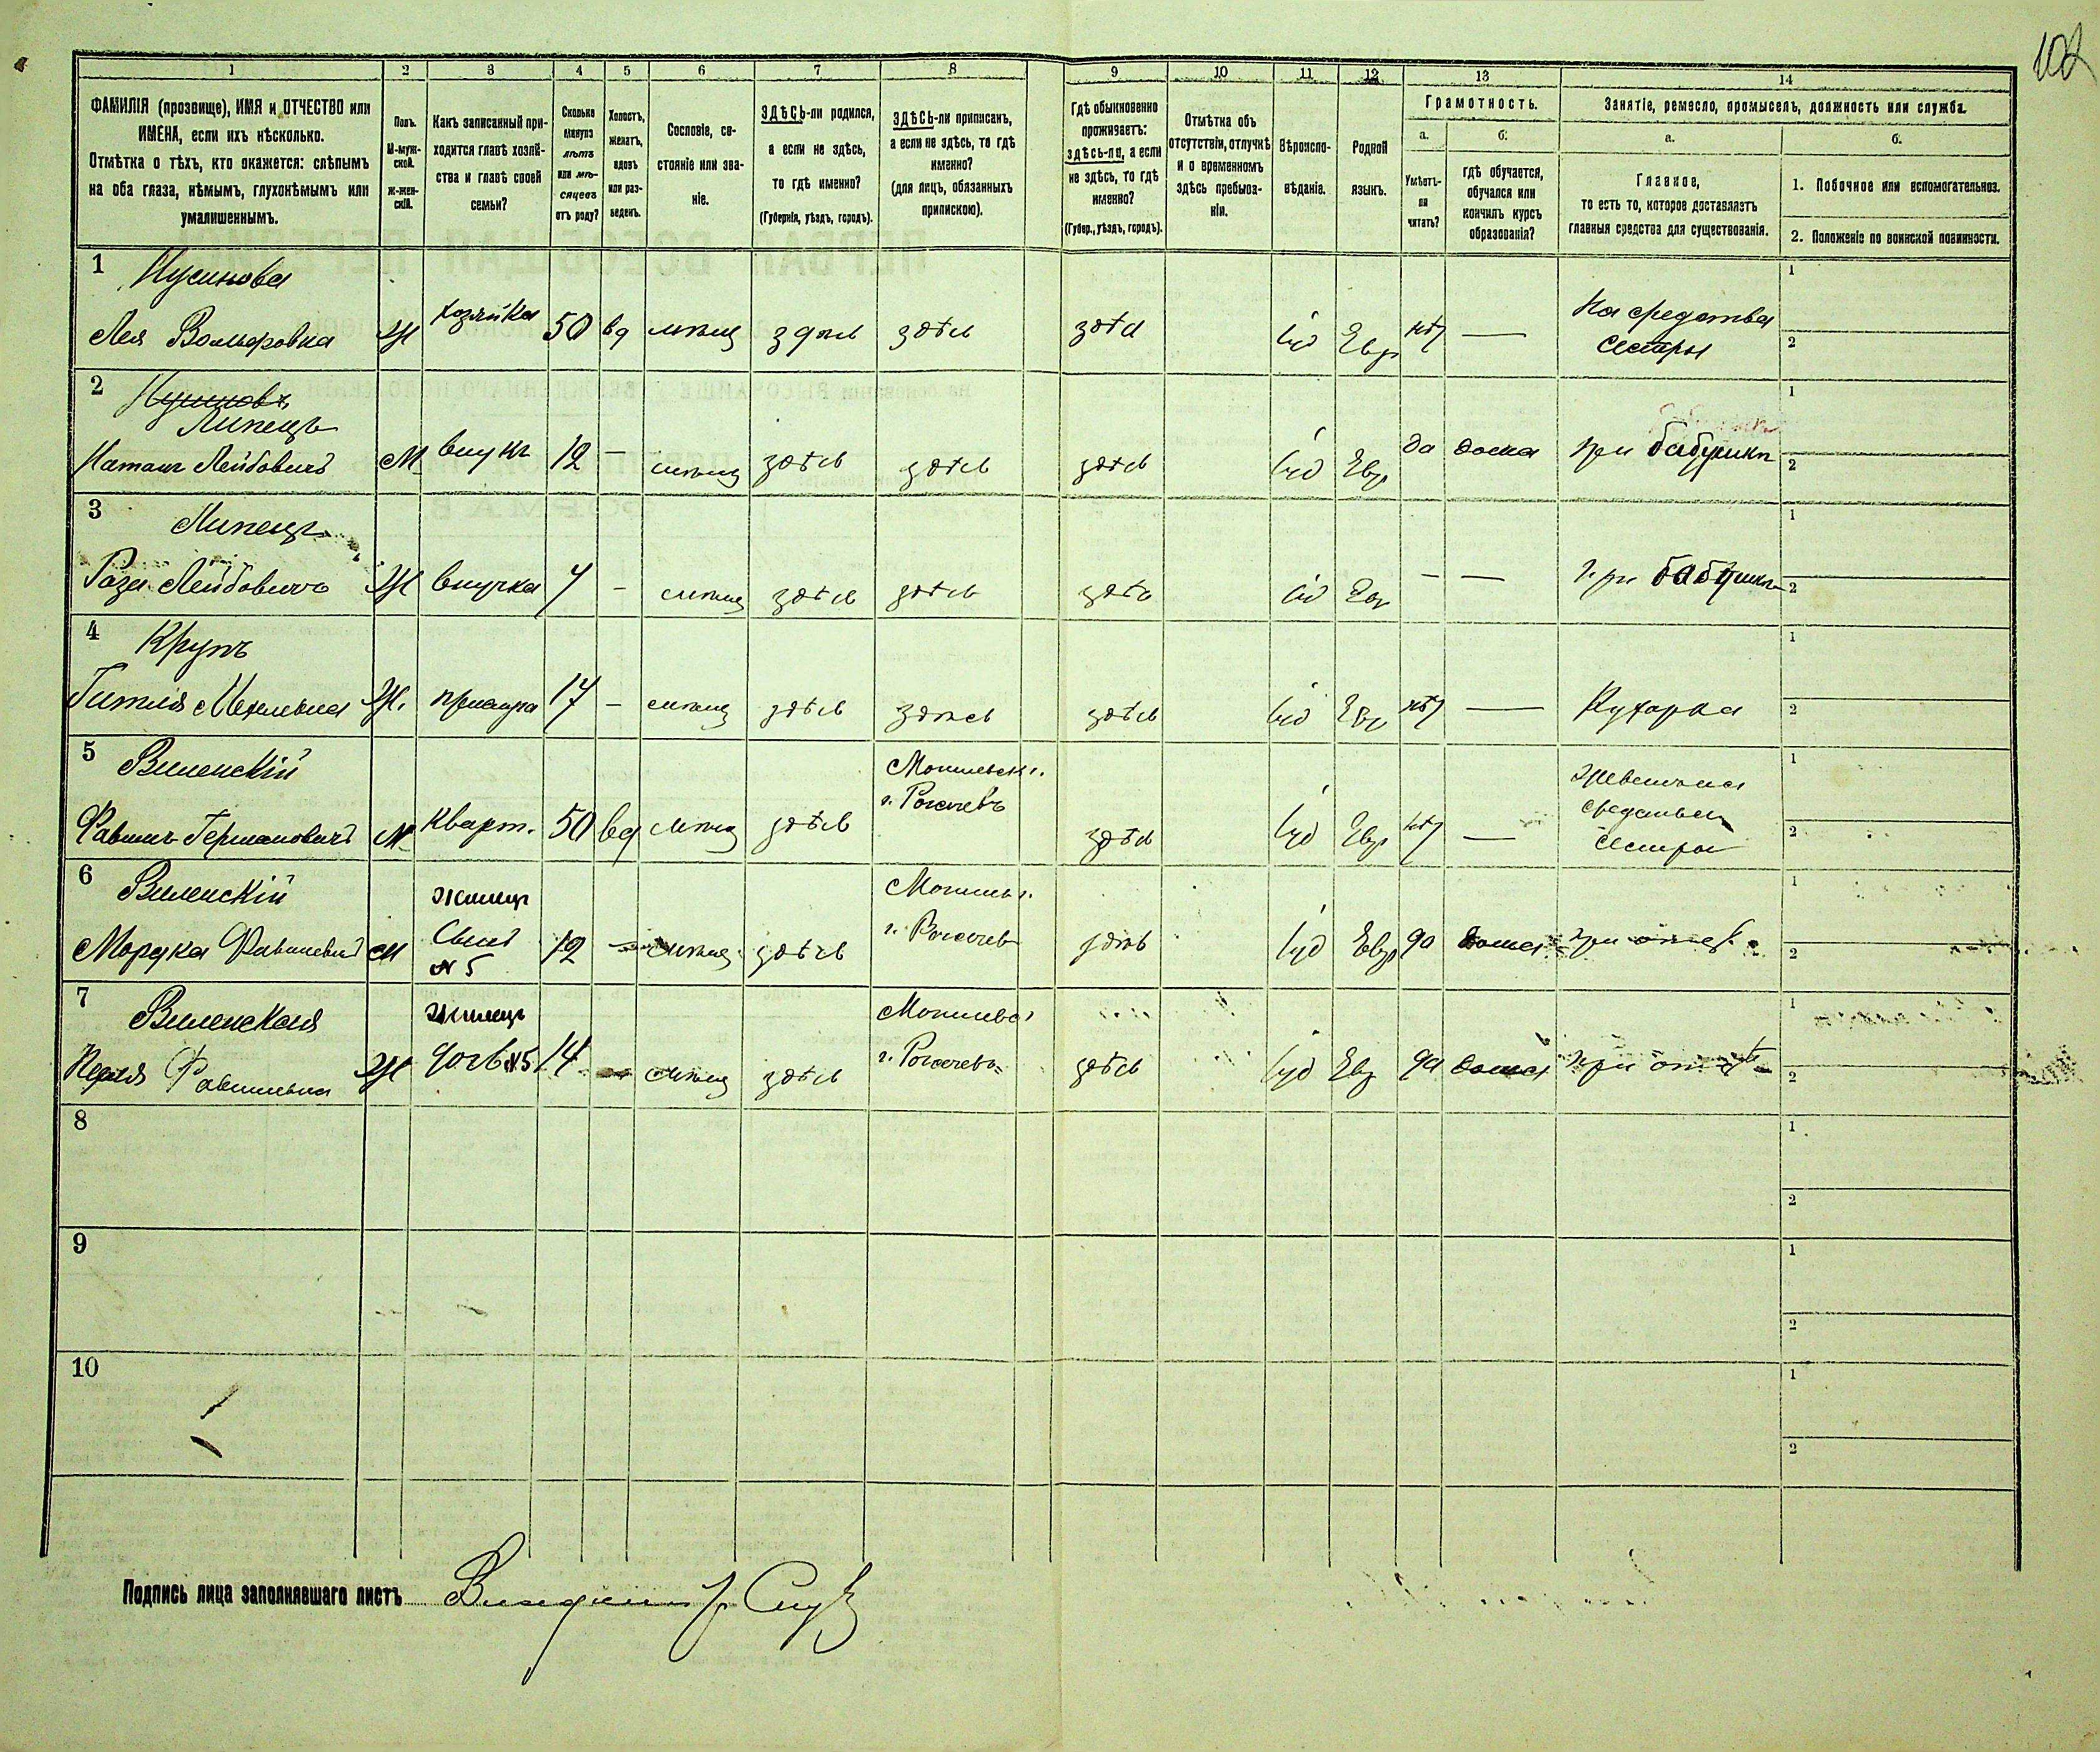 102
1 2 3 4 5 6 7 8 9 10 11 12 13 14
ФАМИЛІЯ (прозвище), ИМЯ и ОТЧЕСТВО или
ИМЕНА, если ихъ нѣсколько.
Отмѣтка о тѣхъ, кто окажется: слѣпымъ
на оба глаза, нѣмымъ, глухонѣмымъ или
умалишеннымъ.
Полъ.
М-муж-
ской.
Ж-жен-
скій.
Какъ записанный при-
ходится главѣ хозяй-
ства и главѣ своей
семьи?
Сколько
минуло
лѣтъ
или мѣ-
сяцевъ
отъ роду?
Холостъ,
женатъ,
вдовъ
или раз-
веденъ.
Сословіе, со-
стояніе или зва-
ніе.
ЗДѢСЬ-ли родился,
а если не здѣсь,
то гдѣ именно?
(Губернія, уѣздъ, городъ).
ЗДѢСЬ-ли приписанъ,
а если не здѣсь, то гдѣ
именно?
(для лицъ, обязанныхъ
припискою).
Гдѣ обыкновенно
проживаетъ:
здѣсь-ли, а если
не здѣсь, то гдѣ
именно?
(Губер., уѣздъ, городъ).
Отмѣтка объ
отсутствіи, отлучкѣ
и о временномъ
здѣсь пребыва-
ніи.
Вѣроиспо-
вѣданіе.
Родной
языкъ.
Грамотность.
а.
Умѣетъ-
ли
читать?
б.
гдѣ обучается,
обучался или
кончилъ курсъ
образованія?
Занятіе, ремесло, промыселъ, должность или служба.
а.
Главное,
то есть то, которое доставляетъ
главныя средства для существованія.
б.
1. Побочное или вспомогательное.
2. Положеніе по воинской повинности.
1 Нусинова
Лея Вольфовна Ж хозяйка 50 вд мѣщ здѣсь здѣсь здѣсь іуд Евр нѣт — На средства
сестры
1
2
2 Нусиновъ
Липецъ
Натанъ Лейбовичъ М внукъ 12 — мѣщ здѣсь здѣсь здѣсь іуд Евр да дома при бабушкѣ
1
2
3 Липецъ
Роза Лейбовичъ Ж внучка 7 — мѣщ здѣсь здѣсь здѣсь іуд Евр — — при бабушкѣ
1
2
4 Крупъ
Гитля Мехелевна Ж. прислуга 17 — мѣщ здѣсь здѣсь здѣсь іуд Евр нѣт — Кухарка
1
2
5 Виленскій Могилевск г.
г. Рогачевъ
Германовичъ М кварт. 50 вд мѣщ здѣсь здѣсь іуд Евр нѣт —
сестры
1
2
6 Виленскій Жилец Могилев г.
г. Рогачев
Мордка М Сынъ 12 — мѣщ здѣсь здѣсь іуд Евр да дома при отцѣ
№ 5
1
2
7 Виленская Жилец Могилевс г.
г. Рогачевъ
Ж дочь №5 14 — мѣщ здѣсь здѣсь іуд Евр да дома при отцѣ
1
2
8
1
2
9
1
2
10
1
2
Подпись лица заполнявшаго листъ